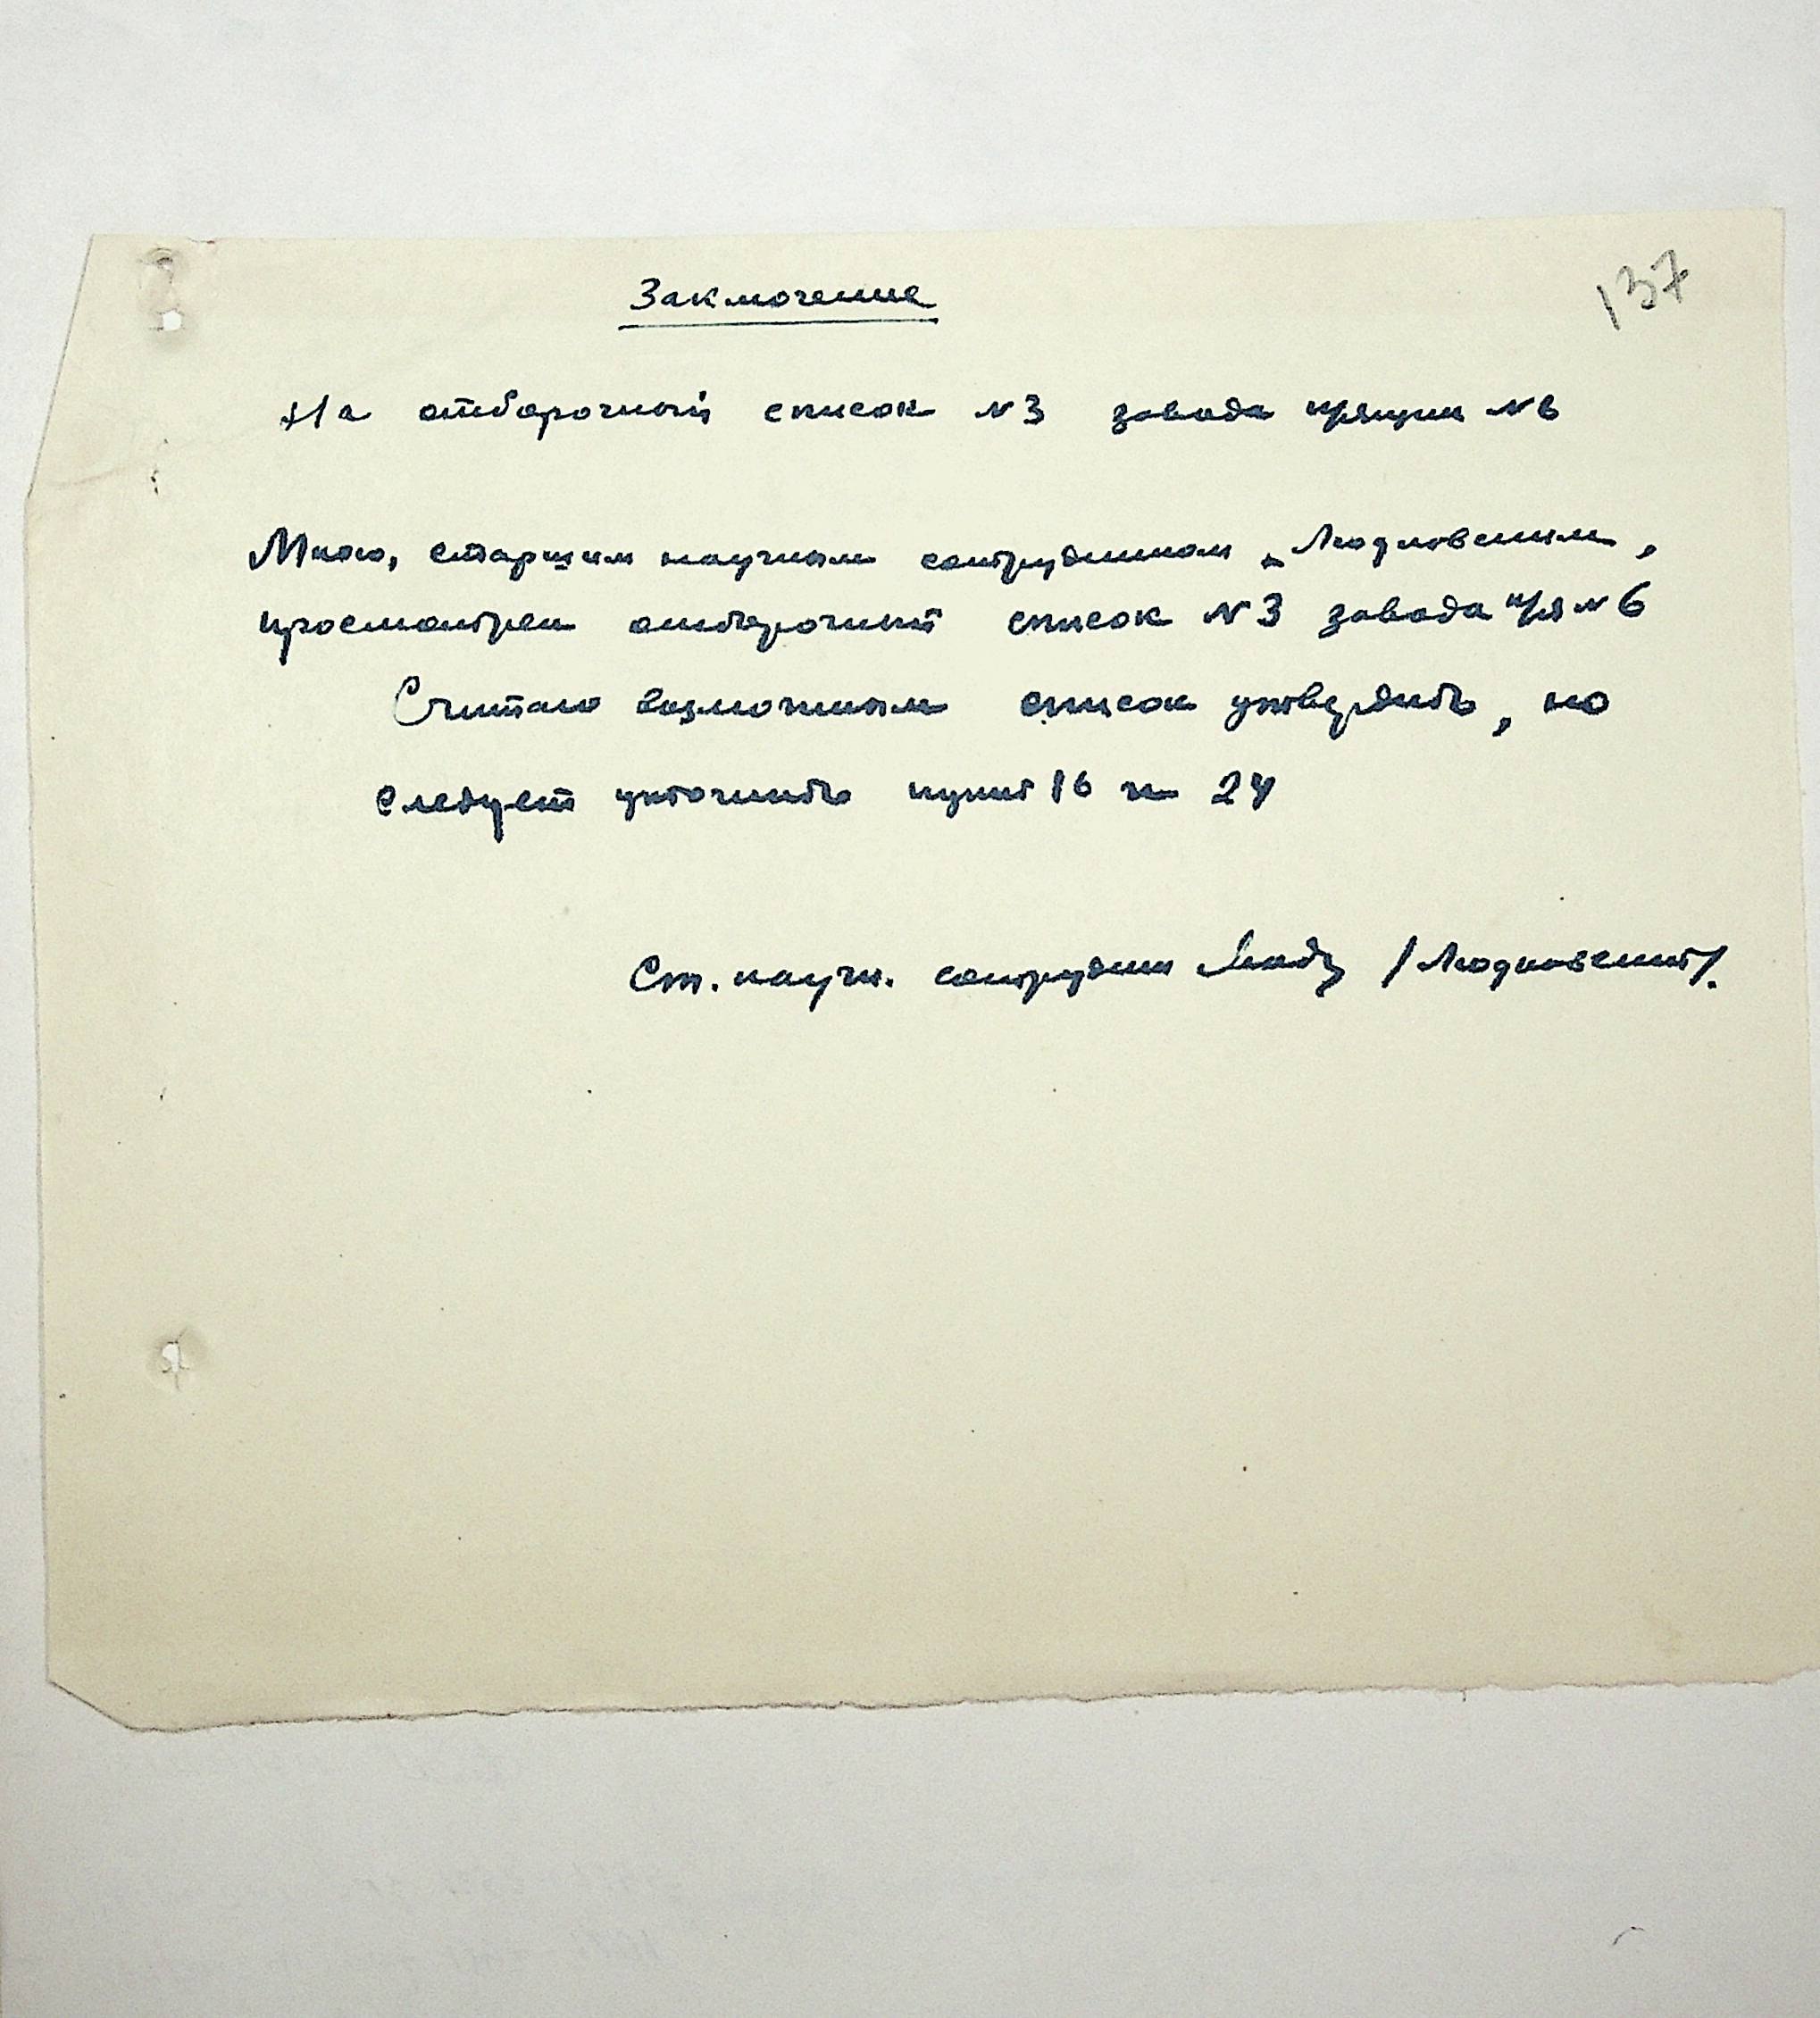 137
Заключение
На отборочный список N3 завода п/ящик N6
Мною, старшим научным сотрудником Людковским,
просмотрен отборочный список N3 завода п/я N6
Считаю возможным список утвердить, но
следует уточнить пункт 16 и 24
Ст. научн. сотрудник /Людковский/.